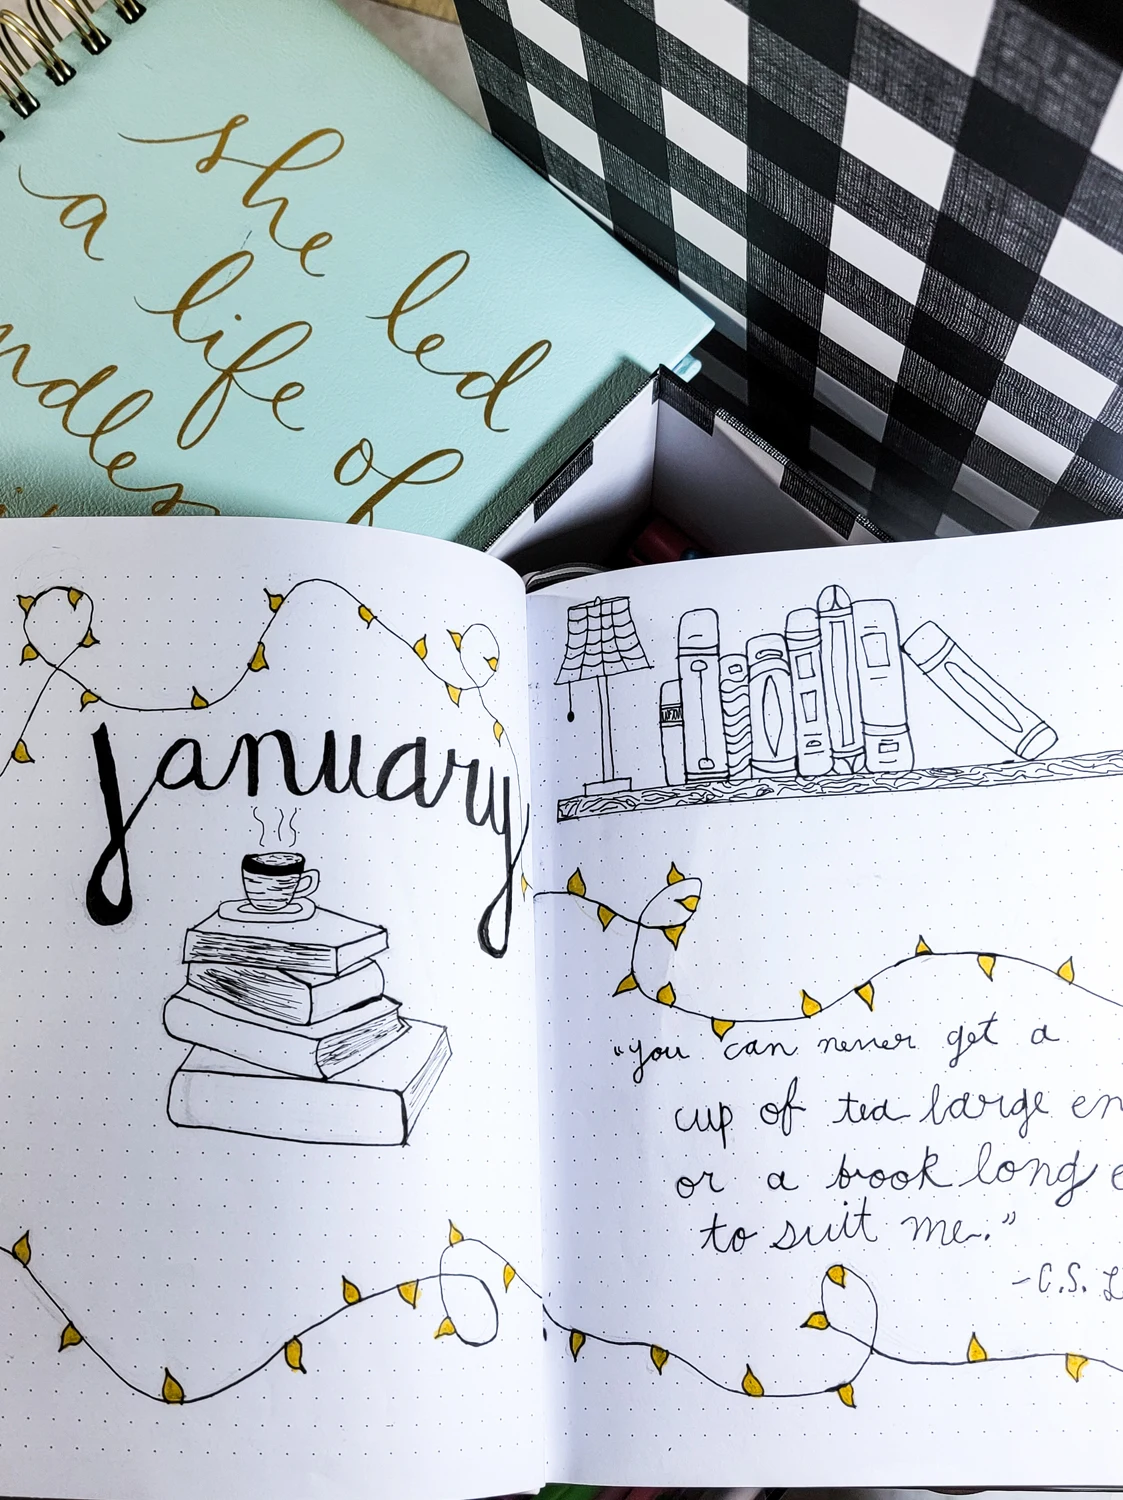 she led
a life of
ndles
january
"you can never get a
cup of tea large en
or a book long e
to suit me."
-C.S.